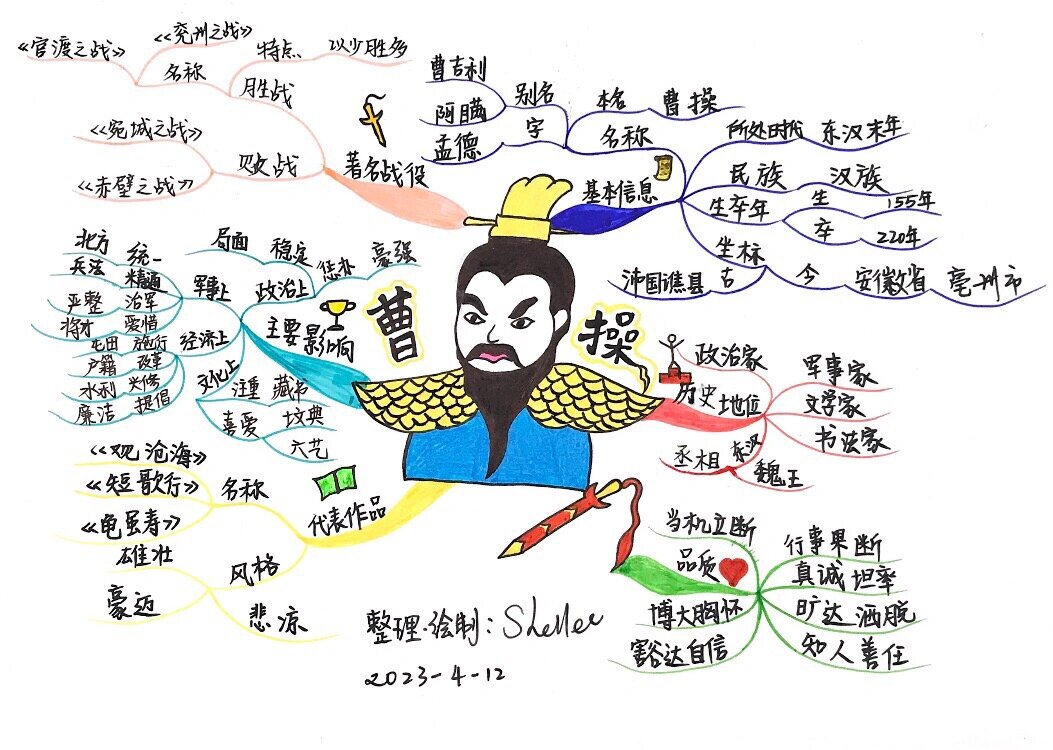 曹操
基本信息
名称
本名
曹操
别名
曹吉利
阿瞒
字
孟德
所处时代
东汉末年
民族
汉族
生卒年
生
155年
卒
220年
坐标
古
沛国谯县
今
安徽省
亳州市
历史地位
政治家
军事家
文学家
书法家
东汉
丞相
魏王
品质
当机立断
行事果断
真诚坦率
旷达洒脱
知人善任
博大胸怀
豁达自信
代表作品
名称
《观沧海》
《短歌行》
《龟虽寿》
风格
雄壮
豪迈
悲凉
主要影响
政治上
稳定
局面
惩办
豪强
军事上
统一
北方
精通
兵法
治军
严整
爱惜
将才
经济上
施行
屯田
改革
户籍
兴修
水利
提倡
廉洁
文化上
注重
藏书
喜爱
坟典
六艺
著名战役
胜战
特点
以少胜多
名称
《兖州之战》
《官渡之战》
败战
《宛城之战》
《赤壁之战》
整理绘制:
2023-4-12